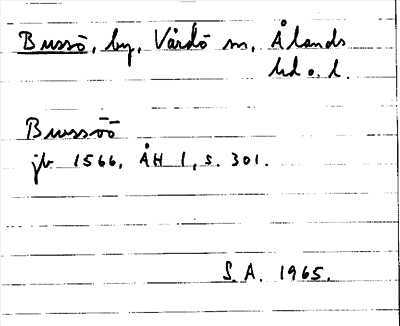 Bussö, by, Vårdö sn, Ålands
hd o. l.
Bwssöö
jb 1566, ÅH 1, s. 301.
S.A. 1965.